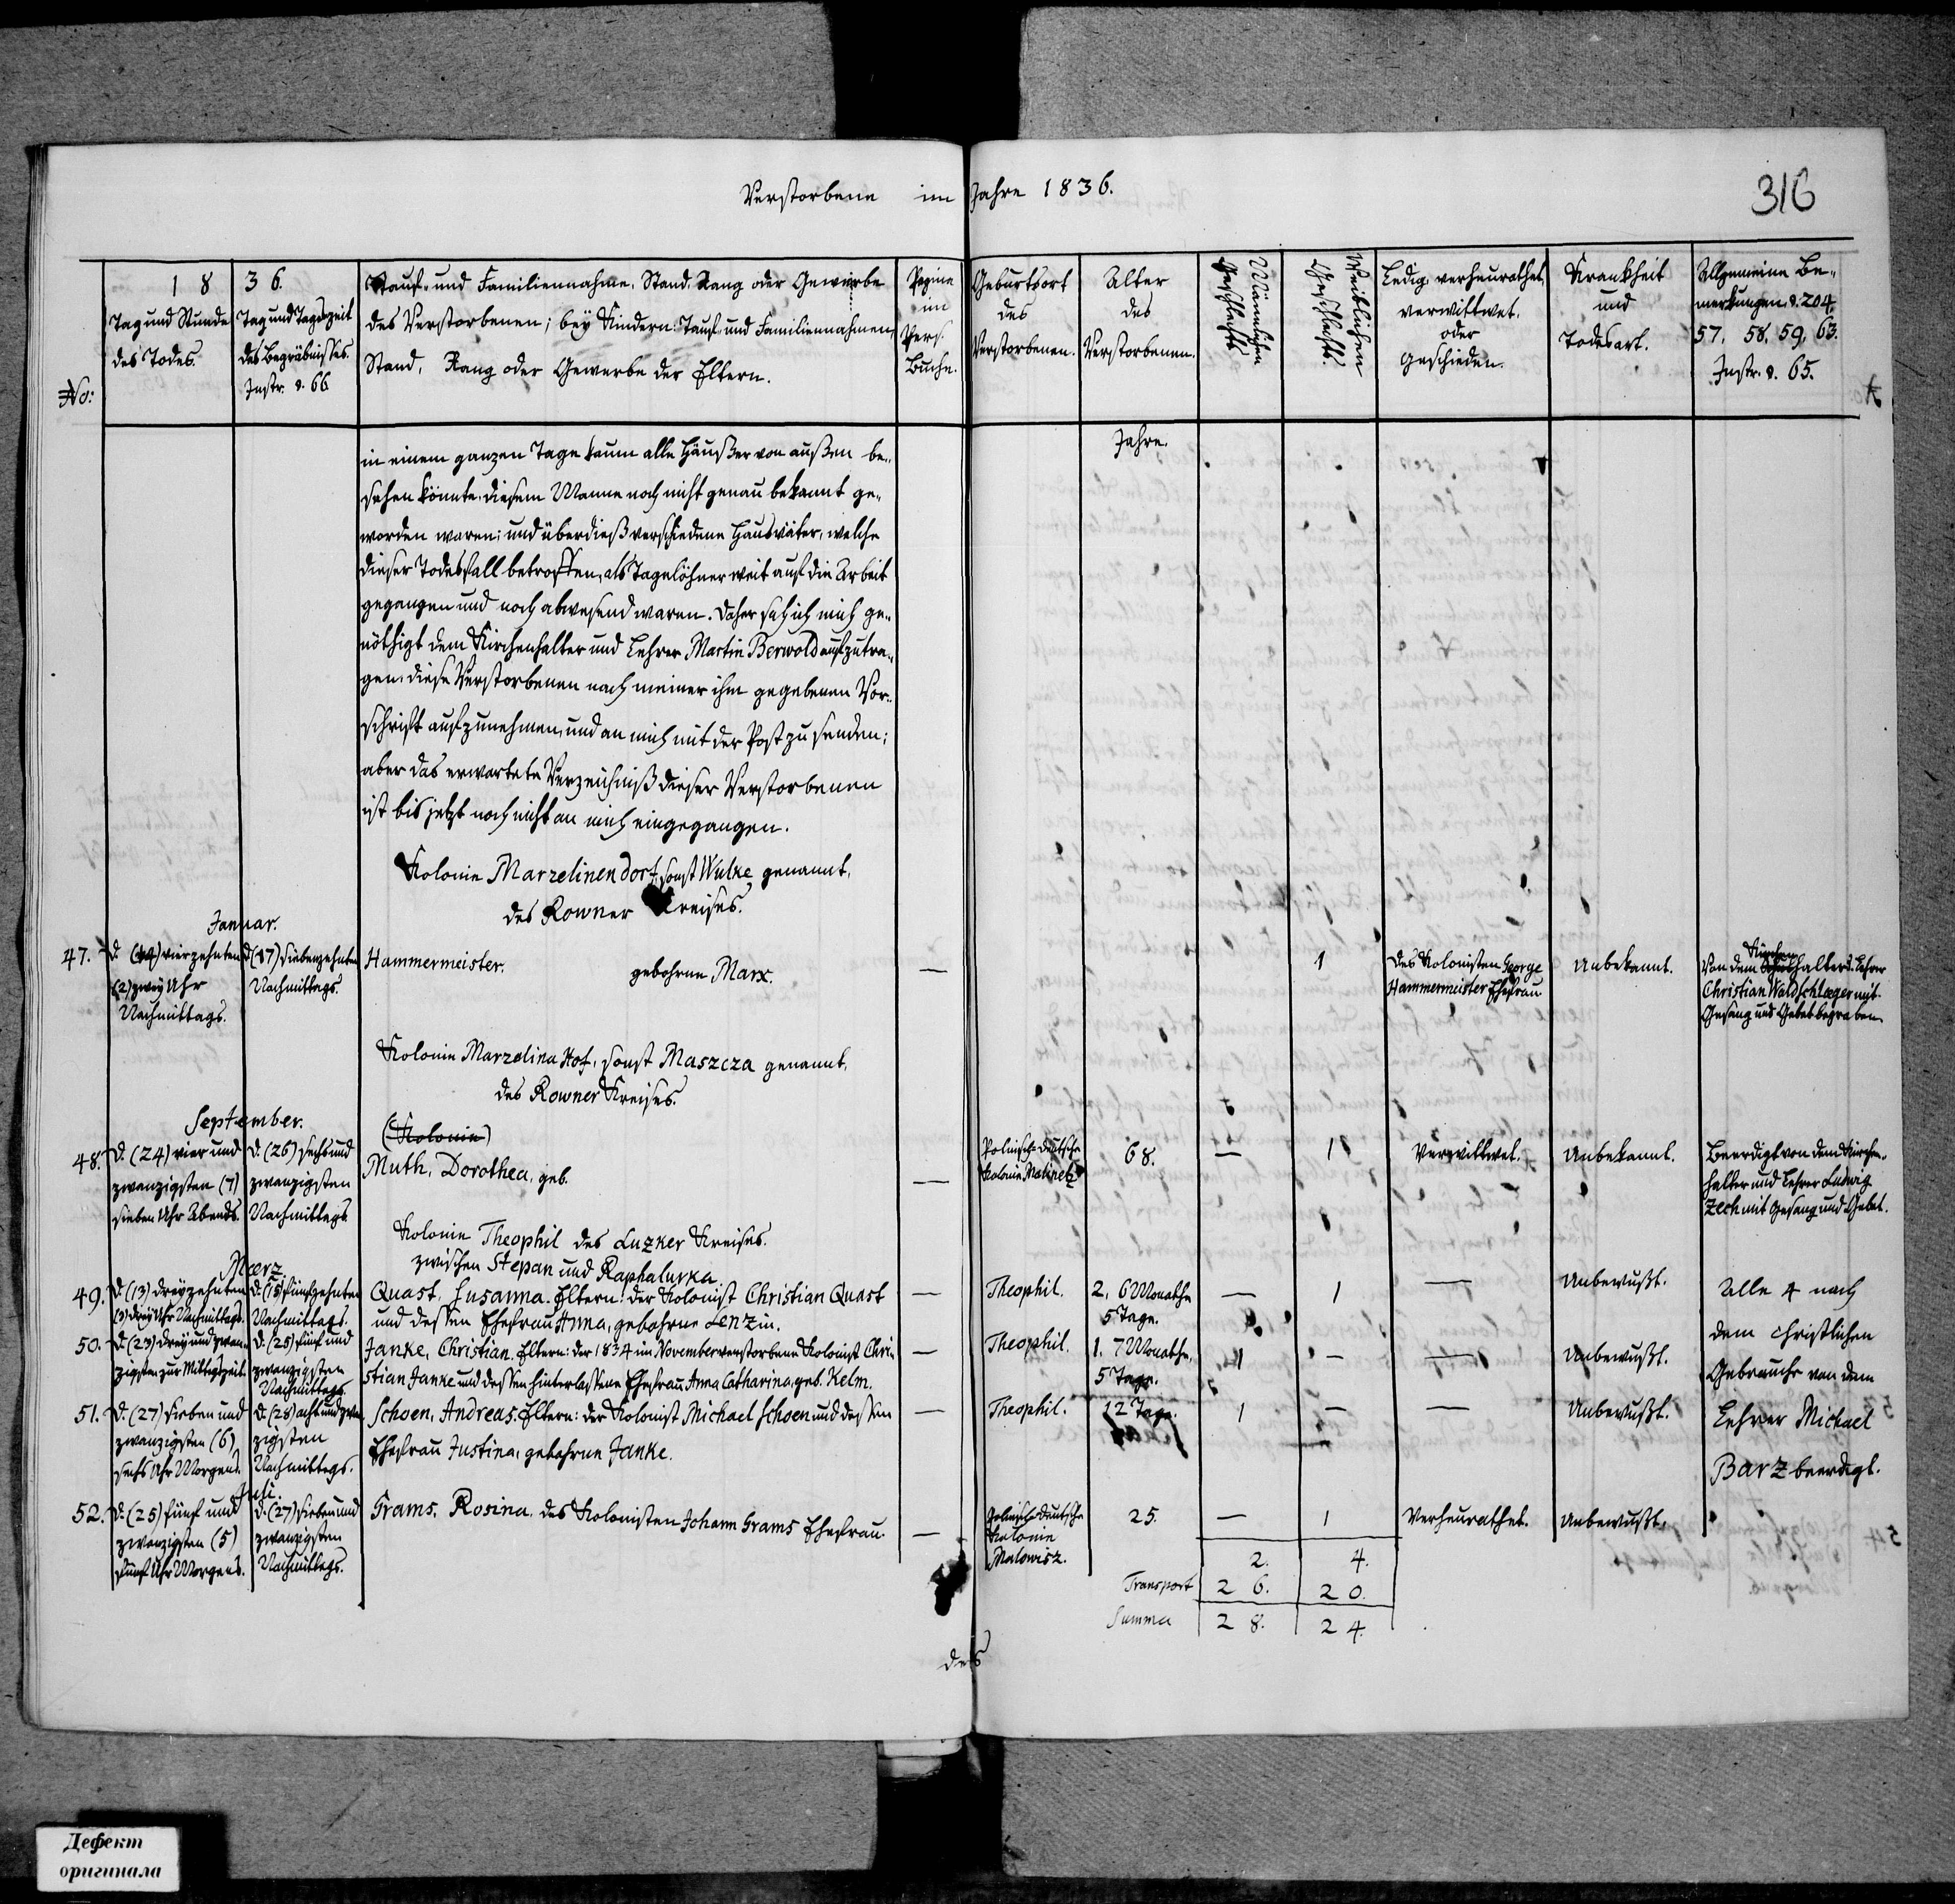 Verstorbene im Jahre 1836.
316
No:
18 36.
Tag und Stunde
des Todes.
Tag und Tageszeit
des Begräbnisses.
Instr. §. 66
Tauf- und Familiennahme, Stand, Rang oder Gewerbe
des Verstorbenen; bey Kindern: Tauf- und Familiennahmen,
Stand, Rang oder Gewerbe der Eltern.
Pagina
im
Pers.
Buche.
Geburtsort
des
Verstorbenen.
Alter
des
Verstorbenen.
Männlichen
Geschlechts
Weiblichen
Geschlechts.
Ledig, verheurathet,
verwittwet,
oder
geschieden.
Krankheit
und
Todesart.
Allgemeine Be-
merkungen §. 204
57. 58. 59. 63.
Instr. §. 65.
Jahre.
in einem ganzen Tage kaum alle Häußer von außen be-
sehen könnte, diesem Manne noch nicht genau bekannt ge-
worden waren; und überdieß verschiedene Hausväter, welche
dieser Todesfall betroffen, als Tagelöhner weit auf die Arbeit
gegangen und noch abwesend waren. Daher sah ich mich ge-
nöthigt dem Kirchenhalter und Lehrer Martin Berwold aufzutra-
gen, diese Verstorbenen nach meiner ihm gegebenen Vor-
schrift aufzunehmen, und an mich mit der Post zu senden;
aber das erwartete Verzeichniß dieser Verstorbenen
ist bis jetzt noch nicht an mich eingegangen.
Kolonie Marzelinendorf, sonst Wulke genannt,
des Rowner Kreises.
Januar.
47. d. (14) vierzehnten
(2) zwey Uhr
Nachmittags.
d. (17) siebenzehnten
Nachmittags.
Hammermeister. gebohrne Marx.
—
1
des Kolonisten George
Hammermeister Ehefrau
Unbekannt.
Kirchen
Von dem halter u. Lehrer
Christian Waldschlaeger mit
Gesang und Gebet begraben
Kolonie Marzelina Hof, sonst Maszcza genannt,
des Rowner Kreises.
September.
(Kolonie)
48. d. (24) vier und
zwanzigsten (7)
sieben Uhr Abends.
d. (26) sechs und
zwanzigsten
Nachmittags
Muth, Dorothea, geb.
—
Polnisch-deutsche
Kolonie Matinetz
68.
— 1
Verwittwet.
Unbekannt.
Beerdigt von dem Kirchen-
halter und Lehrer Ludwig
Zech mit Gesang und Gebet.
Kolonie Theophil des Luzker Kreises.
zwischen Stepan und Raphalurka
Maerz
49. d. (13) dreyzehnten
(3) drey Uhr Nachmittags.
d. (15) fünfzehnten
Nachmittags.
Quast, Susanna. Eltern: der Kolonist Christian Quast
und dessen Ehefrau Anna, gebohrne Lenzin.
—
Theophil.
2, 6 Monathe
5 Tage.
— 1
—
Unbewußt.
Alle 4 nach
dem christlichen
Gebrauche von dem
Lehrer Michael
Barz beerdigt.
50. d. (23) drey und zwan-
zigsten zur Mittagszeit
d. (25) fünf und
zwanzigsten
Nachmittags.
Janke, Christian. Eltern: der 1834 im November verstorbene Kolonist Chri-
stian Janke und dessen hinterlassene Ehefrau Anna Catharina, geb. Kelm.
—
Theophil.
1. 7 Monathe,
5 Tage.
1 —
—
Unbewußt.
51. d. (27) sieben und
zwanzigsten (6)
sechs Uhr Morgens.
d. (28) acht und zwan-
zigsten
Nachmittags.
Schoen, Andreas. Eltern: der Kolonist Michael Schoen und dessen
Ehefrau Justina, gebohrne Janke.
—
Theophil.
12 Tage.
1 —
—
Unbewußt.
Juli.
52. d. (25) fünf und
zwanzigsten (5)
fünf Uhr Morgens.
d. (27) sieben und
zwanzigsten
Nachmittags.
Grams, Rosina, des Kolonisten Johann Grams Ehefrau.
—
Polnisch-deutsche
Kolonie
Malowisz.
25.
— 1
Verheurathet.
Unbewußt.
2. 4.
Transport 26. 20.
Summa 28. 24.
des
Дефект
оригинала